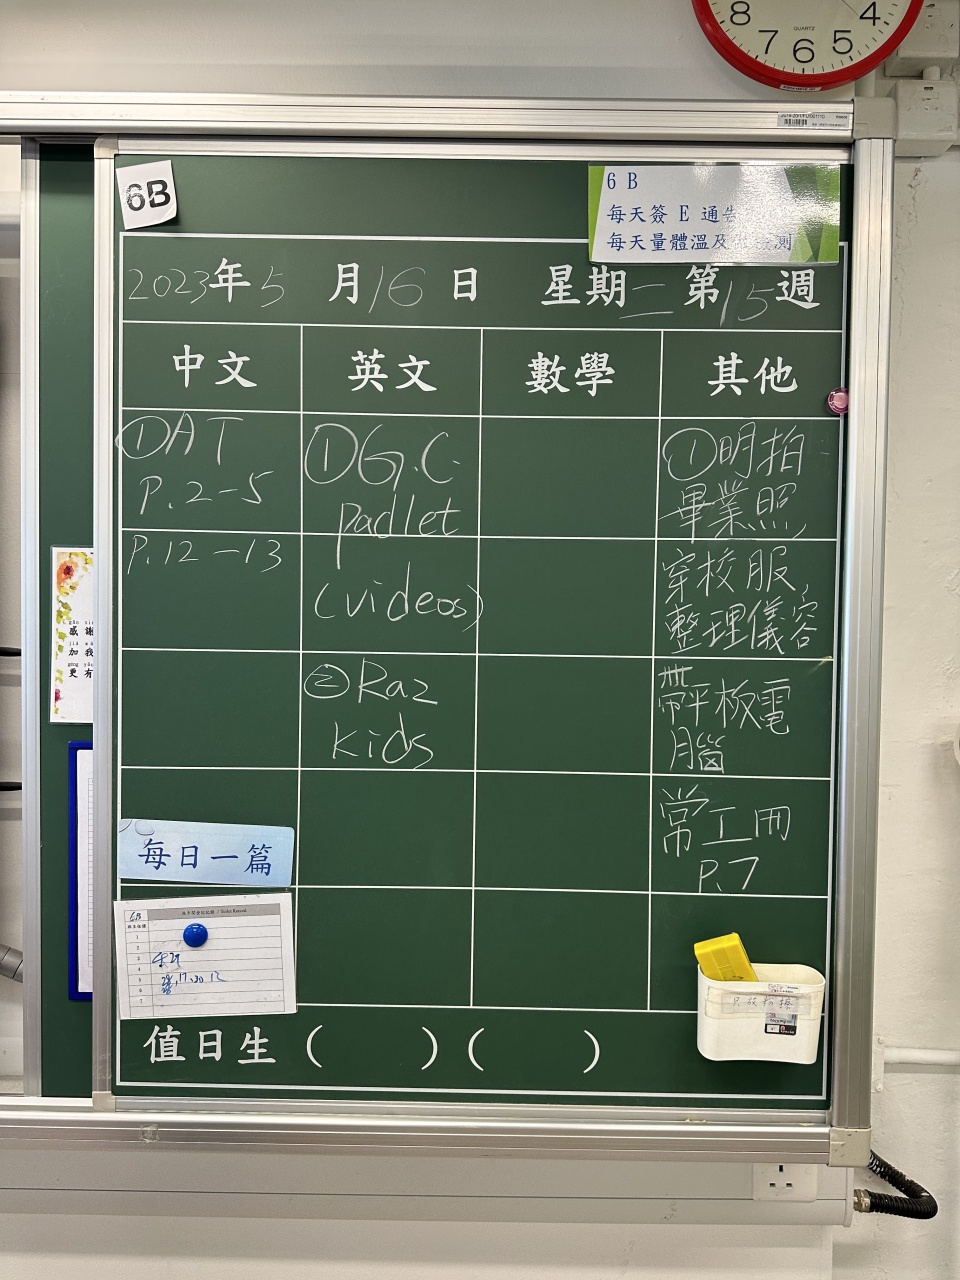 8 7 6 5 4
QUARTZ
6B
6 B
每天簽 E 通告
每天量體溫及 測
2023年5月16日 星期二 第15週
中文 英文 數學 其他
①AT
P.2-5
P.12-13
①G.C.
padlet
(videos)
②Raz
kids
①明拍
畢業照,
穿校服,
整理儀容
帶平板電
腦
常工冊
P.7
每日一篇
6B
Toilet Record
1
2
3
4
5
6
7
17:30
值日生 ( ) ( )
只放粉擦
gǎn xiè
感謝
jiā
加我
gèng yǒu
更有